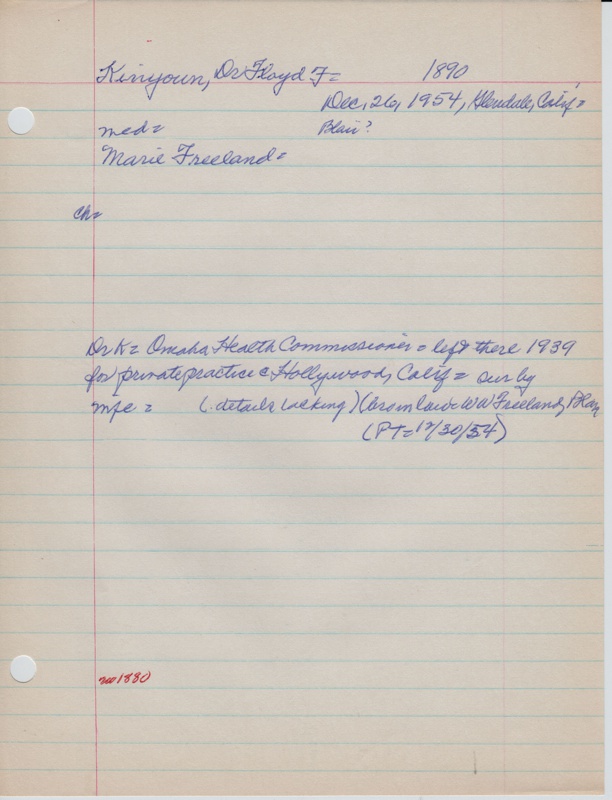 Kinyoun, Dr Floyd F= 1890
Dec, 26, 1954, Glendale, Calif=
med= Blair?
Marie Freeland=
ch=
Dr K= Omaha Health Commissioner = left there 1939
for private practice @ Hollywood, Calif = sur by
mpe = (details lacking) (brosinlaw W W Freeland, Blair
(PT=12/30/54)
no 1880